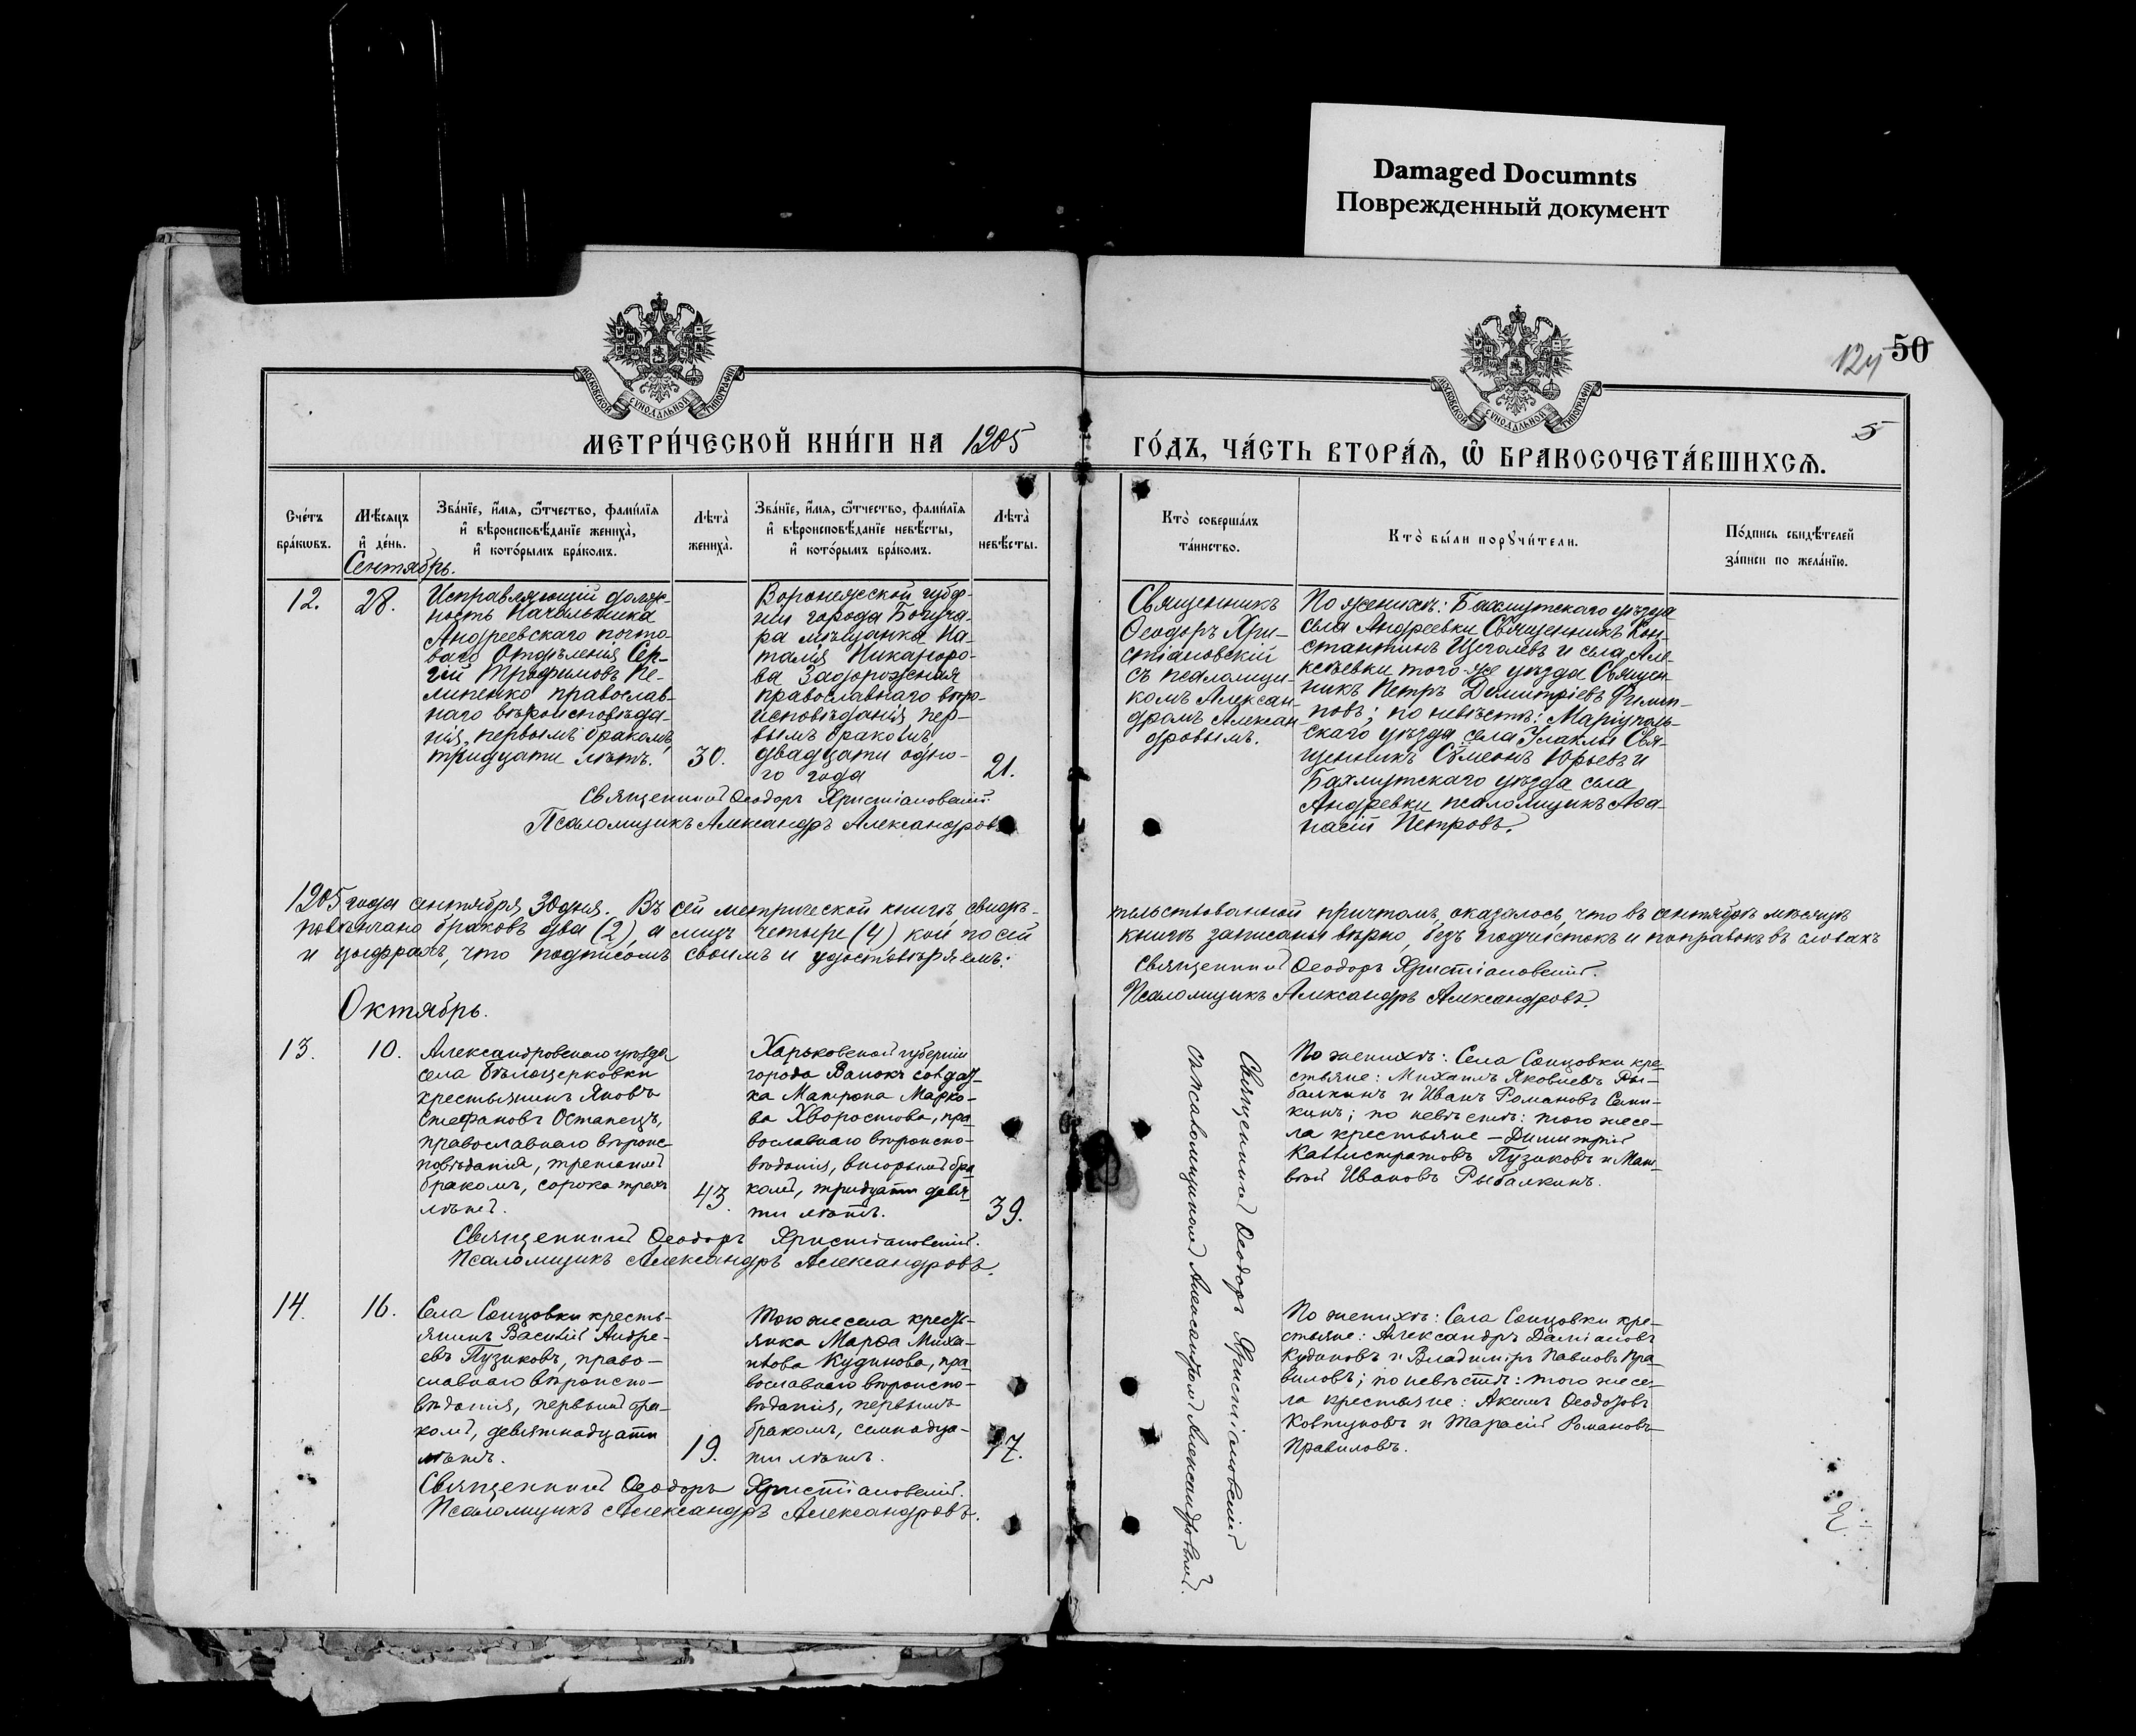 Damaged Documnts
Поврежденный документ
124 50
5
МОСКОВСКОЙ СѴНОДАЛЬНОЙ ТИПОГРАФІИ
МОСКОВСКОЙ СѴНОДАЛЬНОЙ ТИПОГРАФІИ
МЕТРИ́ЧЕСКОЙ КНИ́ГИ НА 1905
ГО́ДЪ, ЧА́СТЬ ВТОРА́Ѧ, Ѡ҆ БРАКОСОЧЕТА́ВШИХСѦ.
Сче́тъ
бра́кѡвъ.
Мѣ́сѧцъ
и҆ де́нь.
Зва́нїе, и҆́мѧ, ѻ҆́тчество, фами́лїѧ
и҆ вѣроисповѣ́данїе жениха̀,
и҆ кото́рымъ бра́комъ.
Лѣта̀
жениха̀.
Зва́нїе, и҆́мѧ, ѻ҆́тчество, фами́лїѧ
и҆ вѣроисповѣ́данїе невѣ́сты,
и҆ кото́рымъ бра́комъ.
Лѣта̀
невѣ́сты.
Кто̀ соверша́лъ
та́инство.
Кто̀ бы́ли порꙋчи́тели.
По́дпись свидѣ́телей
за́писи по жела́нїю.
Сентябрь.
12.
28.
Исправляющій долж-
ность Начальника
Андреевскаго почто-
ваго Отдѣленія Сер-
гій Трофимовъ Пе-
липенко православ-
наго вѣроисповѣда-
нія, первымъ бракомъ,
тридцати лѣтъ.
30.
Воронежской губер-
ніи города Богуча-
ра мѣщанка На-
талія Никаноро-
ва Задорожная
православнаго вѣро-
исповѣданія, пер-
вымъ бракомъ
двадцати одно-
го года
21.
Священникъ
Ѳеодоръ Хри-
стіановскій
съ псаломщи-
комъ Алексан-
дромъ Алексан-
дровымъ.
По женихѣ: Бахмутскаго уѣзда
села Андреевки Священникъ Кон-
стантинъ Щеголевъ и села Але-
ксѣевки того-же уѣзда Священ-
никъ Петръ Димитріевъ Филип-
повъ; по невѣстѣ: Маріуполь-
скаго уѣзда села Улаклы Свя-
щенникъ Сѵмеонъ Юрьевъ и
Бахмутскаго уѣзда села
Андреевки псаломщикъ Аѳа-
насій Петровъ.
Священникъ Ѳеодоръ Христіановскій.
Псаломщикъ Александръ Александровъ
1905 года сентября 30 дня. Въ сей метрической книгѣ свидѣ-
тельствованной причтомъ, оказалось, что въ сентябрѣ мѣсяцѣ
повѣнчано браковъ два (2), а лицъ четыре (4), кои по сей
книгѣ записаны вѣрно, безъ подчистокъ и поправокъ въ словахъ
и цыфрахъ, что подписомъ своимъ и удостовѣряемъ:
Священникъ Ѳеодоръ Христіановскій.
Псаломщикъ Александръ Александровъ.
Октябрь.
13.
10.
Александровскаго уѣзда
села Бѣлоцерковки
крестьянинъ Яковъ
Стефановъ Останецъ,
православнаго вѣроис-
повѣданія, третьимъ
бракомъ, сорока трехъ
лѣтъ.
43.
Харьковской губерніи
города Валокъ солдат-
ка Матрона Марко-
ва Хворостова, пра-
вославнаго вѣроиспо-
вѣданія, вторымъ бра-
комъ, тридцати девя-
ти лѣтъ.
39.
Священникъ Ѳеодоръ Христіановскій
съ псаломщикомъ Александромъ Александровымъ.
По женихѣ: Села Солнцовки кре-
стьяне: Михаилъ Яковлевъ Ры-
балкинъ и Иванъ Романовъ Семи-
кинъ; по невѣстѣ: того же се-
ла крестьяне – Димитрій
Каллистратовъ Пузиковъ и Мат-
вѣй Ивановъ Рыбалкинъ.
Священникъ Ѳеодоръ Христіановскій.
Псаломщикъ Александръ Александровъ.
14.
16.
Села Солнцовки кресть-
янинъ Василій Андре-
евъ Пузиковъ, право-
славнаго вѣроиспо-
вѣданія, первымъ бра-
комъ, девятнадцати
лѣтъ.
19.
Того же села кресть-
янка Марѳа Миха-
илова Кудинова, пра
вославнаго вѣроиспо-
вѣданія, первымъ
бракомъ, семнадца-
ти лѣтъ.
17.
По женихѣ: Села Солнцовки кре-
стьяне: Александръ Даміановъ
Кудиновъ и Владиміръ Павловъ Пра-
виловъ; по невѣстѣ: того же се-
ла крестьяне: Акимъ Ѳеодоровъ
Ковтуновъ и Тарасій Романовъ
Правиловъ.
Священникъ Ѳеодоръ Христіановскій.
Псаломщикъ Александръ Александровъ.